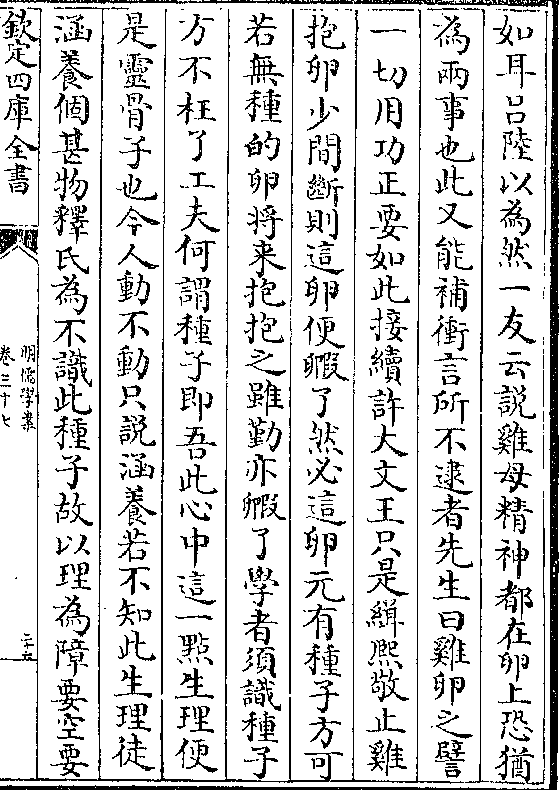 如耳吕陸以為然一友云說雞母精神都在卵上恐猶
為兩事也此又能補衝言所不逮者先生曰雞卵之譬
一切用功正要如此接續許大文王只是緝熈敬止雞
抱卵少間斷則這卵便毈了然必這卵元有種子方可
若無種的卵将来抱抱之雖勤亦毈了學者須識種子
方不枉了工夫何謂種子即吾此心中這一點生理便
是靈骨子也今人動不動只說涵養若不知此生理徒
涵養個甚物釋氏為不識此種子故以理為障要空要
欽定四庫全書
明儒學案
卷三十七
二十五